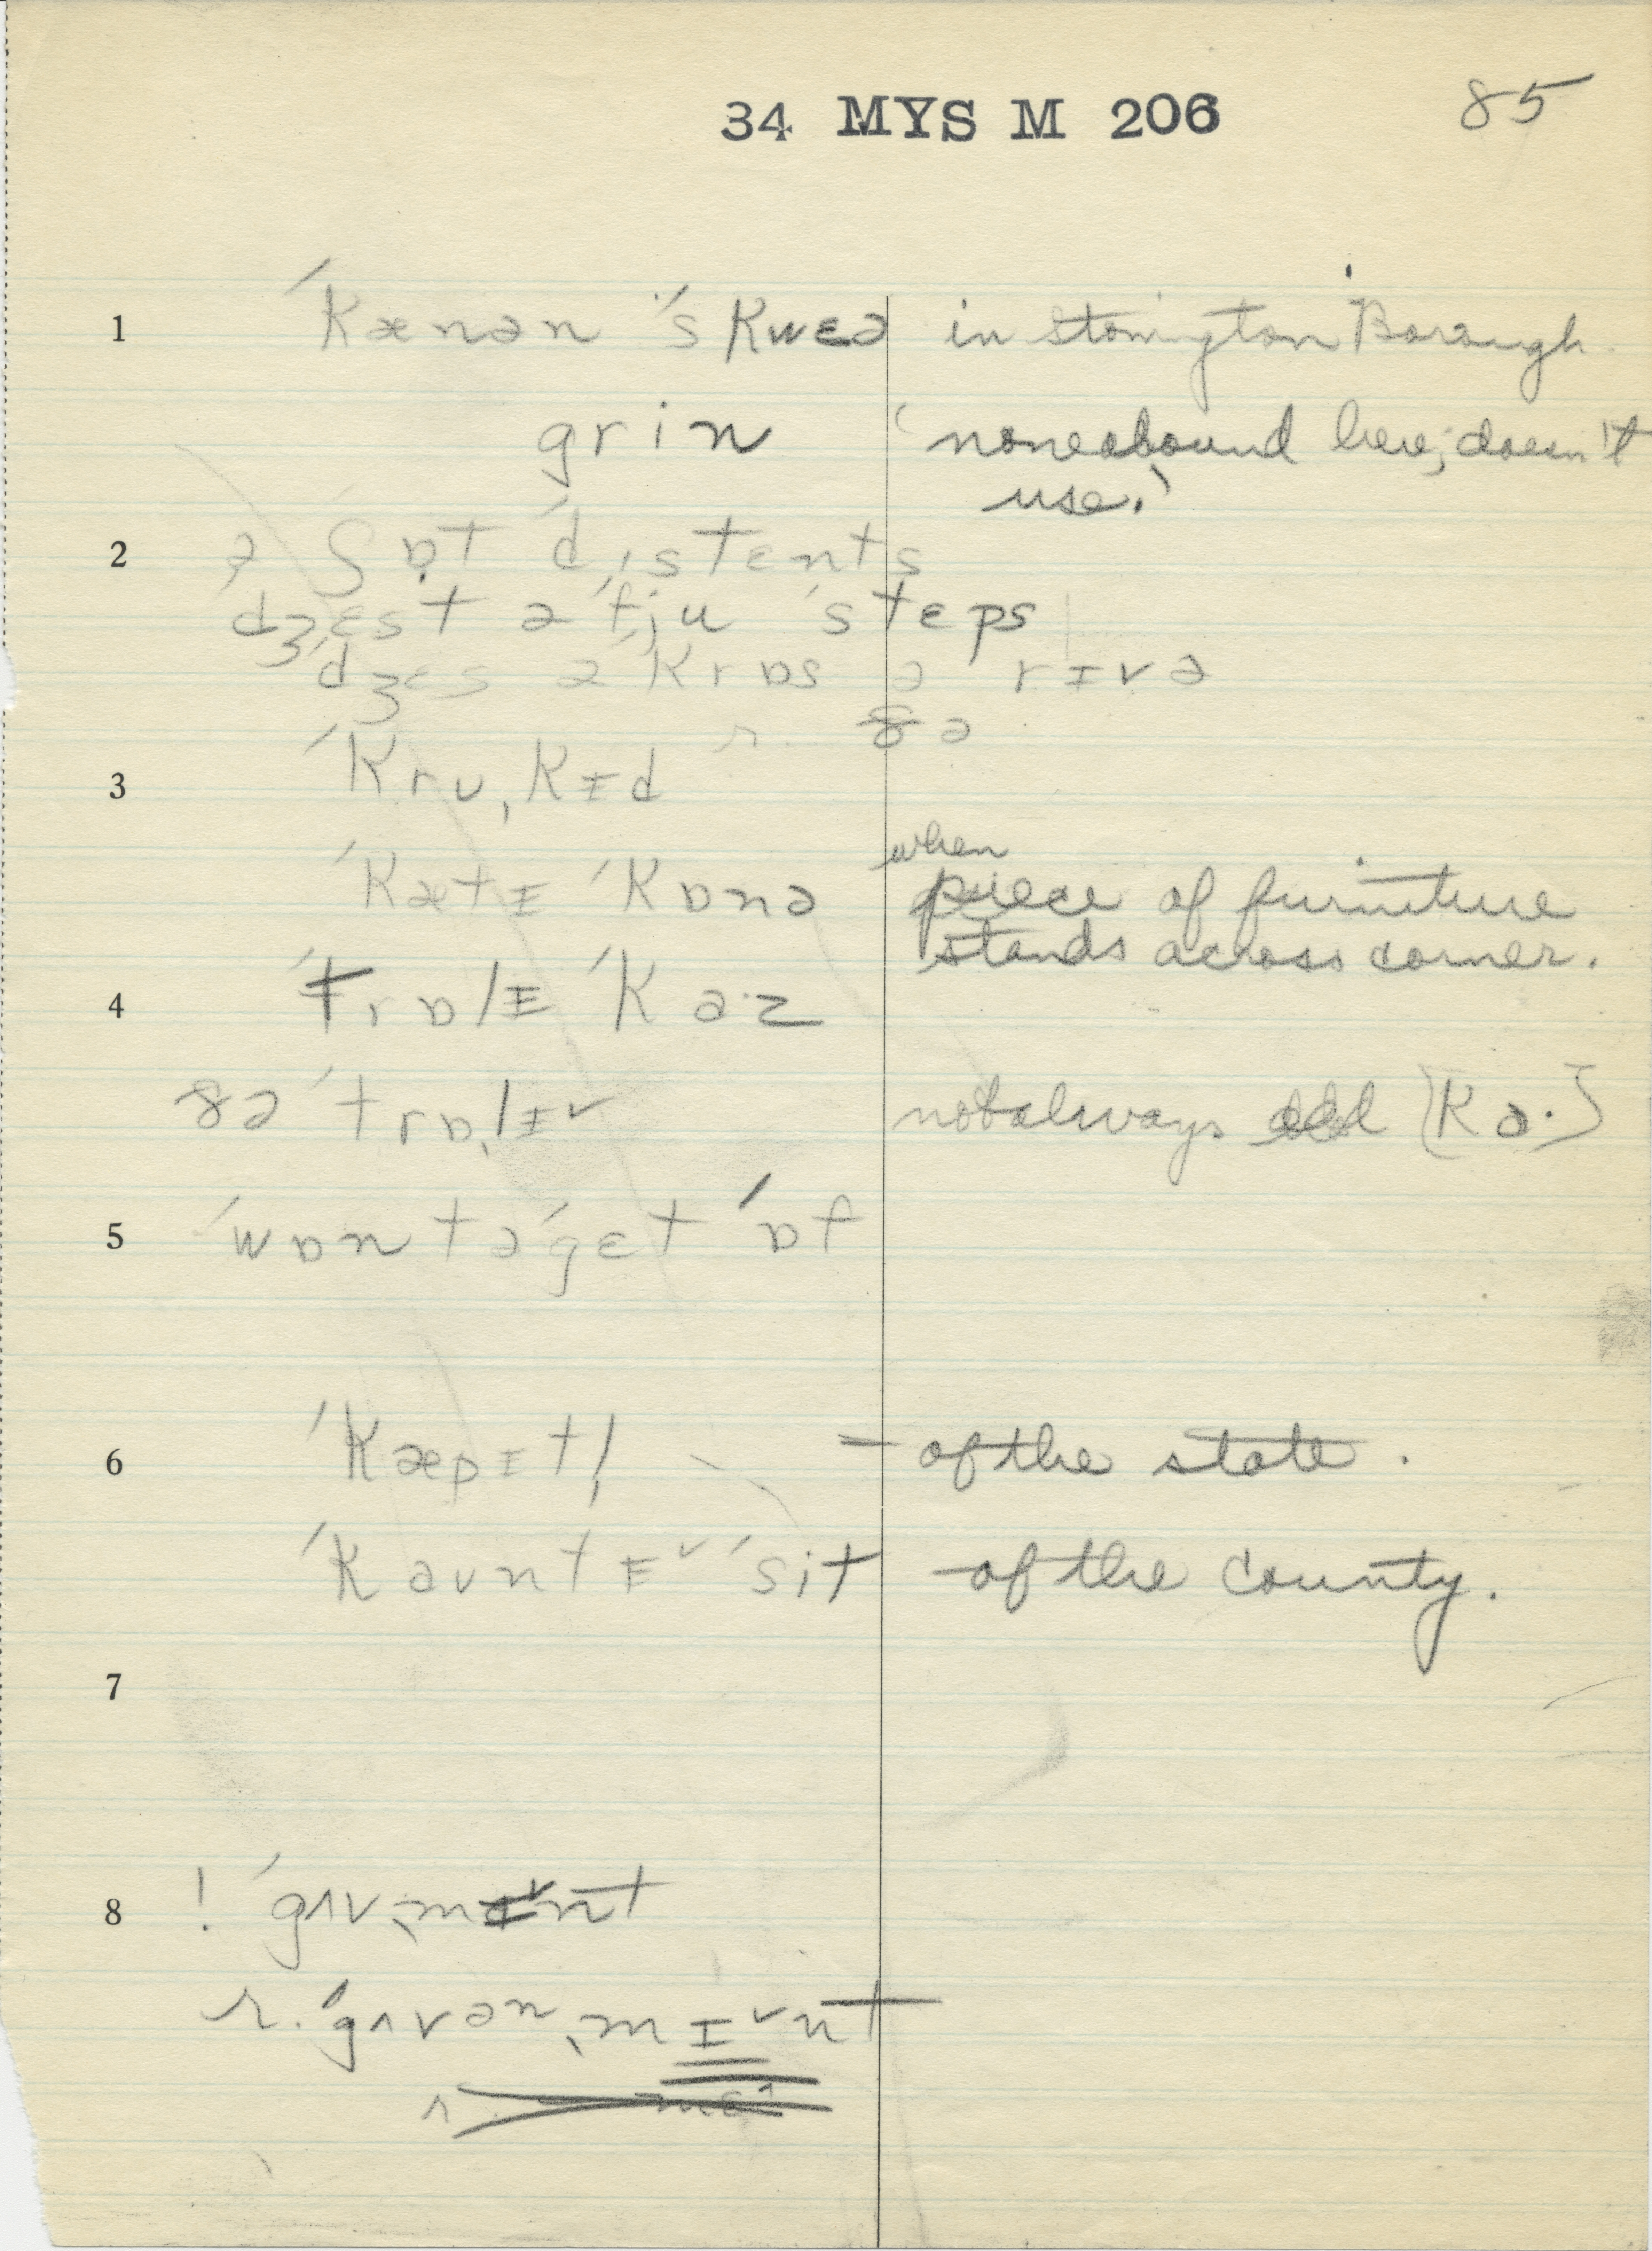 34 MYS M 206 85
1 ˊkænən ˊskwɛə in Stonington Borough.
grin 'none abound here; doesn't
use.'
2 ə ʃɒt ˊdɪstɛnts
dʒɛst ə ˊfju ˊstɛps
ˊdʒɛs əˊkrɒs ə rɪvə
r. ðə
3 ˊkrʊˌkɪd
ˊkætɪ ˊkɒnə when
piece of furniture
stands across corner.
4 ˊtrɒlɪ ˊkaːz
ðə ˊtrɒˌlɪ˅ not always add [ka·]
5 ˊwɒn tə ˊgɛt ˊɒf
6 ˊkæpɪtl̩ – of the state.
ˊkaʊntɪ˅ ˊsit – of the county.
7
8 ! ˊgʌvˌmɪ˅nt
r. ˊgʌvənˌmɪ˅nt